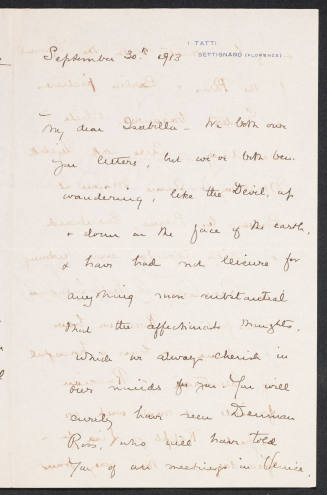 I TATTI
SETTIGNANO (FLORENCE)
September 30th 1913
My dear Isabella - We both owe
you letters, but we've both been
wandering, like the Devil, up
& down on the face of the earth,
& have had not leisure for
anything more substantial
that the affectionate thoughts,
which we always cherish in
our minds for you. You will
surely have seen Denman
Ross, who will have told
you of our meetings in Venice,